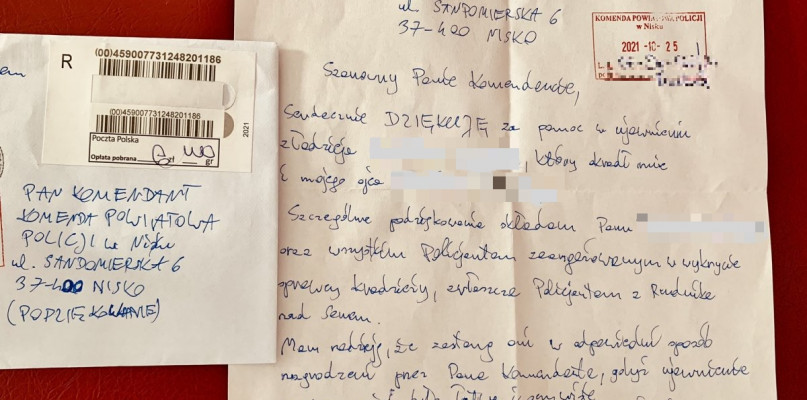 R
(00)459007731248201186
(00)459007731248201186
Poczta Polska
Opłata pobrana zł gr
2021
PAN KOMENDANT
KOMENDA POWIATOWA
POLICJI w Nisku
ul. SANDOMIERSKA 6
37-400 NISKO
(PODZIĘKOWANIE)
ul. SANDOMIERSKA 6
37-400 NISKO
KOMENDA POWIATOWA POLICJI
w Nisku
2021 -10- 25
Szanowny Panie Komendancie,
Serdecznie DZIĘKUJĘ za pomoc w ujawnieniu
złodzieja , który okradł mnie
i mojego ojca
Szczególne podziękowania składam Panu
oraz wszystkim Policjantom zaangażowanym w wykrycie
sprawcy kradzieży, zwłaszcza Policjantom z Rudnika
nad Sanem.
Mam nadzieję, że zostaną oni w odpowiedni sposób
nagrodzeni przez Pana Komendanta, gdyż ujawnienie